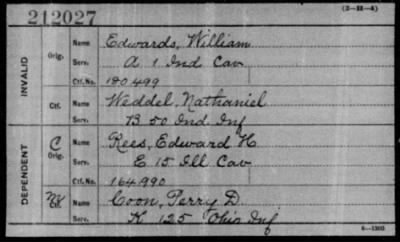 212027 (3-21-A)
INVALID
Orig. Name Edwards, William
Serv. A 1 Ind Cav
Ctf. No. 180499
Ctf. Name Weddel, Nathaniel
Serv. B 50 Ind Inf
DEPENDENT
C Orig. Name Rees, Edward H.
Serv. E 15 Ill Cav
Ctf. No. 164990
Ctf. Name Coon, Perry D.
Serv. K 125 Ohio Inf